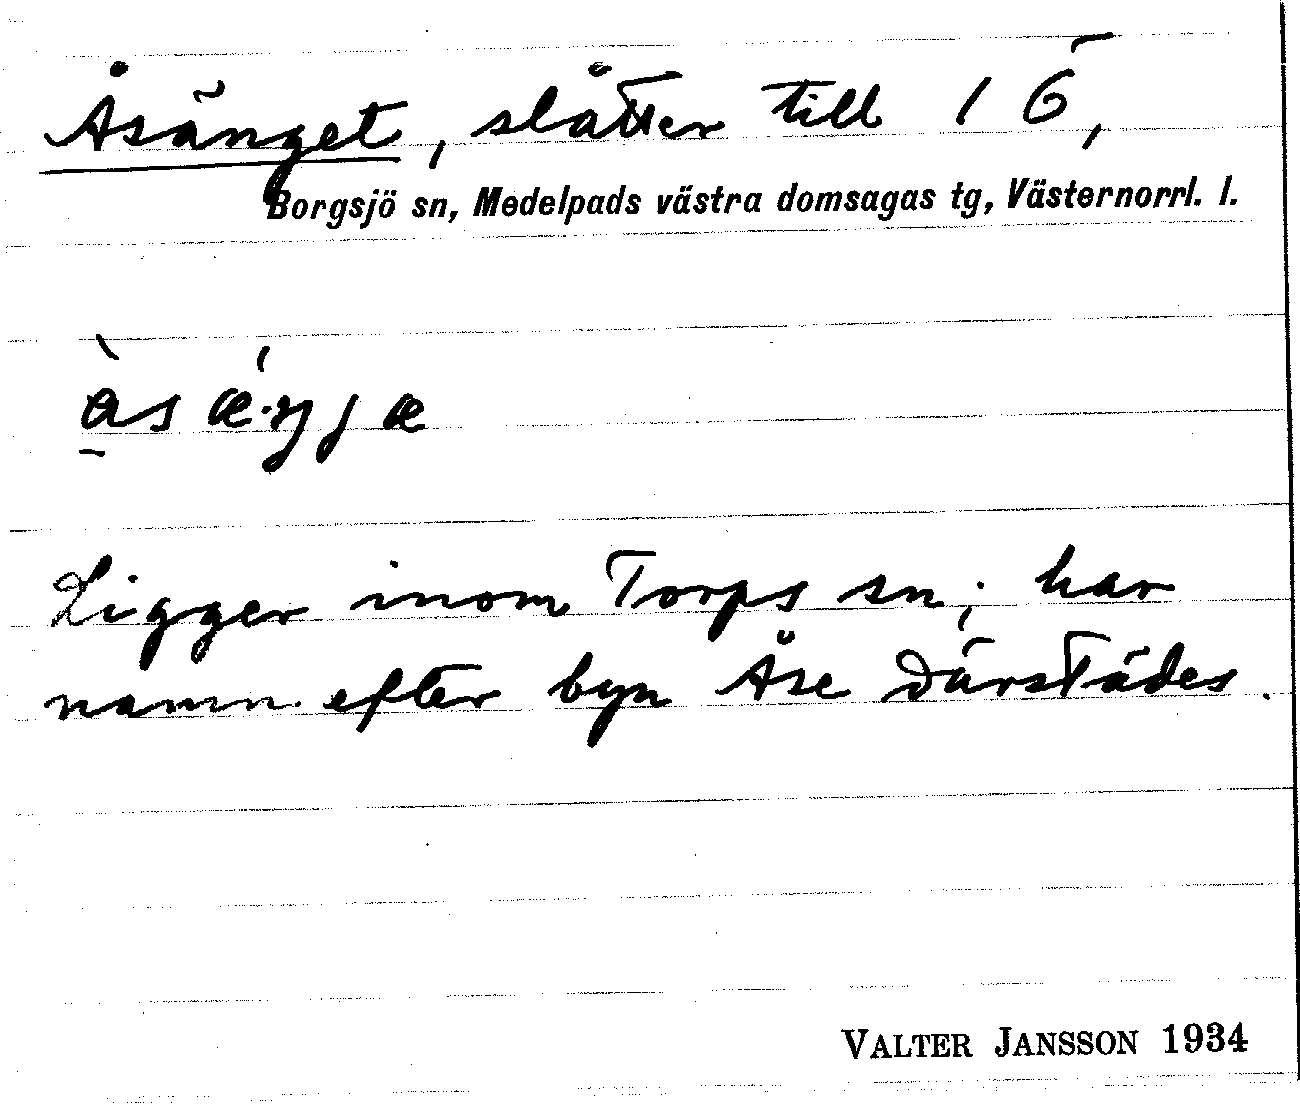 Åsänget, slåtter till 1 6,
Borgsjö sn, Medelpads västra domsagas tg, Västernorrl. l.
Ligger inom Torps sn; har
namn efter byn Åse därstädes.
VALTER JANSSON 1934